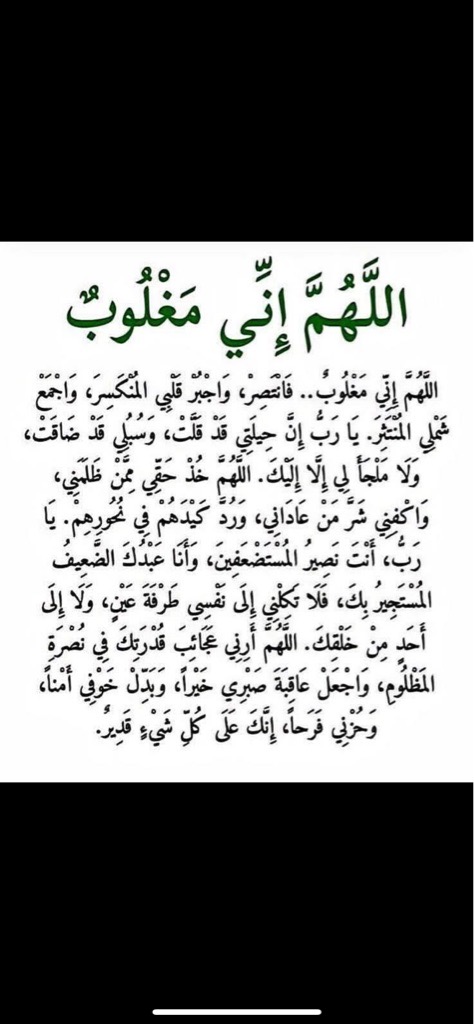 اللَّهُمَّ إِنِّي مَغْلُوبٌ
اللَّهُمَّ إِنِّي مَغْلُوبٌ.. فَانْتَصِرْ، وَاجْبُرْ قَلْبِي المُنْكَسِرَ، وَاجْمَعْ
شَمْلِي المُنْتَثِرَ. يَا رَبُّ إِنَّ حِيلَتِي قَدْ قَلَّتْ، وَسُبُلِي قَدْ ضَاقَتْ،
وَلَا مَلْجَأَ لِي إِلَّا إِلَيْكَ. اللَّهُمَّ خُذْ حَقِّي مِمَّنْ ظَلَمَنِي،
وَاكْفِنِي شَرَّ مَنْ عَادَانِي، وَرُدَّ كَيْدَهُمْ فِي نُحُورِهِمْ. يَا
رَبُّ، أَنْتَ نَصِيرُ المُسْتَضْعَفِينَ، وَأَنَا عَبْدُكَ الضَّعِيفُ
المُسْتَجِيرُ بِكَ، فَلَا تَكِلْنِي إِلَى نَفْسِي طَرْفَةَ عَيْنٍ، وَلَا إِلَى
أَحَدٍ مِنْ خَلْقِكَ. اللَّهُمَّ أَرِنِي عَجَائِبَ قُدْرَتِكَ فِي نُصْرَةِ
المَظْلُومِ، وَاجْعَلْ عَاقِبَةَ صَبْرِي خَيْراً، وَبَدِّلْ خَوْفِي أَمْناً،
وَحُزْنِي فَرَحاً، إِنَّكَ عَلَى كُلِّ شَيْءٍ قَدِيرٌ.